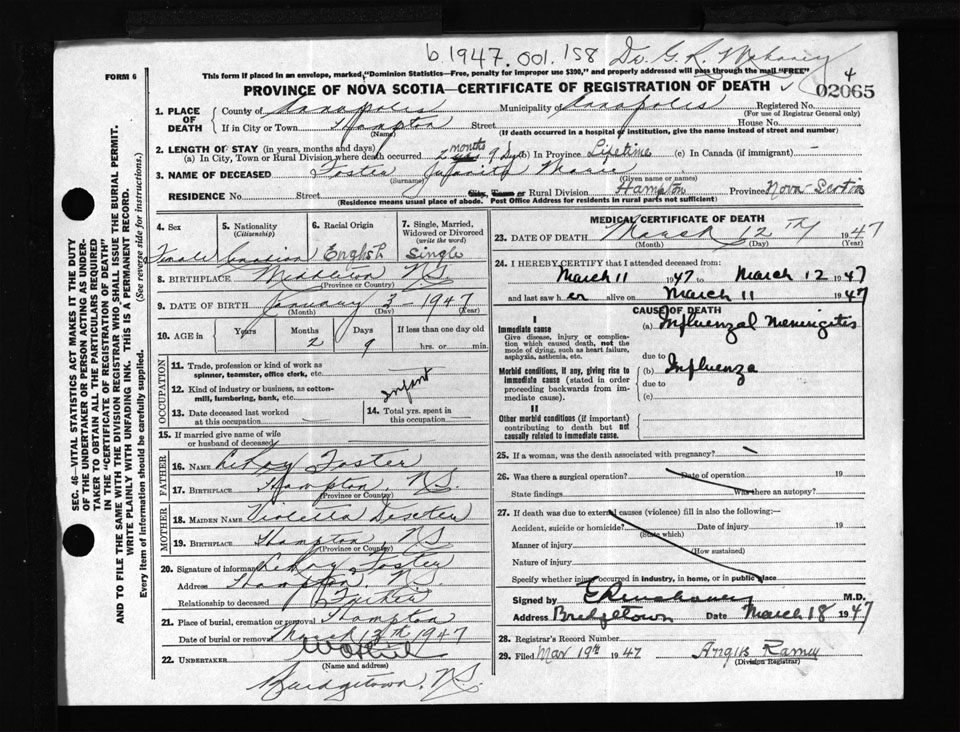 b 1947. 001. 158 Dr. G. R. Mahaney
FORM 6
This form if placed in an envelope, marked, "Dominion Statistics—Free, penalty for improper use $300," and properly addressed will pass through the mail "FREE"
4
PROVINCE OF NOVA SCOTIA—CERTIFICATE OF REGISTRATION OF DEATH
02065
1. PLACE OF DEATH County of Annapolis Municipality of Annapolis Registered No.
(For use of Registrar General only)
If in City or Town Hampton Street House No.
(Name) (If death occurred in a hospital or institution, give the name instead of street and number)
2. LENGTH OF STAY (in years, months and days)
(a) In City, Town or Rural Division where death occurred 2 months 9 days (b) In Province Lifetime (c) In Canada (if immigrant) –
3. NAME OF DECEASED Foster Marie
(Surname) (Given name or names)
RESIDENCE No. Street City, Town or Rural Division Hampton Province Nova Scotia
(Residence means usual place of abode. Post Office Address for residents in rural parts not sufficient)
SEC. 46—VITAL STATISTICS ACT MAKES IT THE DUTY
OF THE UNDERTAKER OR PERSON ACTING AS UNDER-
TAKER TO OBTAIN ALL THE PARTICULARS REQUIRED
IN THE "CERTIFICATE OF REGISTRATION OF DEATH"
AND TO FILE THE SAME WITH THE DIVISION REGISTRAR WHO SHALL ISSUE THE BURIAL PERMIT.
WRITE PLAINLY WITH UNFADING INK. THIS IS A PERMANENT RECORD.
Every item of information should be carefully supplied. (See reverse side for instructions.)
4. Sex 5. Nationality (Citizenship) 6. Racial Origin 7. Single, Married, Widowed or Divorced (write the word)
Female Canadian English Single
8. BIRTHPLACE Middleton N.S.
(Province or Country)
9. DATE OF BIRTH January 3 - 1947
(Month) (Day) (Year)
10. AGE in Years Months Days If less than one day old
2 9 hrs. or min.
OCCUPATION
11. Trade, profession or kind of work as
spinner, teamster, office clerk, etc.
12. Kind of industry or business, as cotton-
mill, lumbering, bank, etc. Infant
13. Date deceased last worked at this occupation
14. Total yrs. spent in this occupation
15. If married give name of wife
or husband of deceased
FATHER
16. NAME LeRoy Foster
17. BIRTHPLACE Hampton, N.S.
(Province or Country)
MOTHER
18. MAIDEN NAME Violetta
19. BIRTHPLACE Hampton, N.S.
(Province or Country)
20. Signature of informant LeRoy Foster
Address Hampton, N.S.
Relationship to deceased Father
21. Place of burial, cremation or removal Hampton
Date of burial or removal March 13th 1947
22. UNDERTAKER
(Name and address)
Bridgetown, N.S.
MEDICAL CERTIFICATE OF DEATH
23. DATE OF DEATH March 12TH 1947
(Month) (Day) (Year)
24. I HEREBY CERTIFY that I attended deceased from:
March 11 1947 to March 12 1947
and last saw h er alive on March 11 1947
CAUSE OF DEATH
I
Immediate cause
Give disease, injury or complica-
tion which caused death, not the
mode of dying, such as heart failure,
asphyxia, asthenia, etc.
(a) Influenzal Meningites
due to
Morbid conditions, if any, giving rise to
immediate cause (stated in order
proceeding backwards from im-
mediate cause).
(b) Influenza
due to
(c)
II
Other morbid conditions (if important)
contributing to death but not
causally related to immediate cause.
25. If a woman, was the death associated with pregnancy?
26. Was there a surgical operation? Date of operation 19
State findings Was there an autopsy?
27. If death was due to external causes (violence) fill in also the following:—
Accident, suicide or homicide? Date of injury 19
(State which)
Manner of injury
(How sustained)
Nature of injury
Specify whether injury occurred in industry, in home, or in public place
Signed by M.D.
Address Bridgetown Date March 18 1947
28. Registrar's Record Number
29. Filed Mar 19th 1947 Angus Ramey
(Division Registrar)